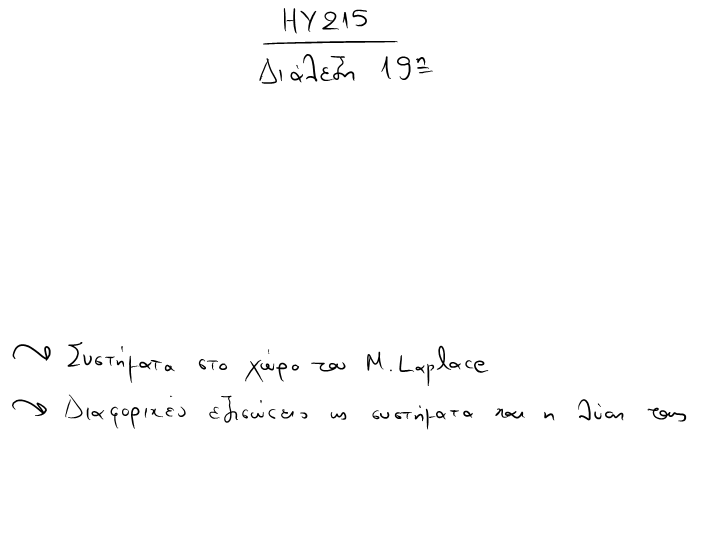 HY215
Διάλεξη 19η
Συστήματα στο χώρο του Μ. Laplace
Διαφορικές εξισώσεις ως συστήματα και η λύση τους